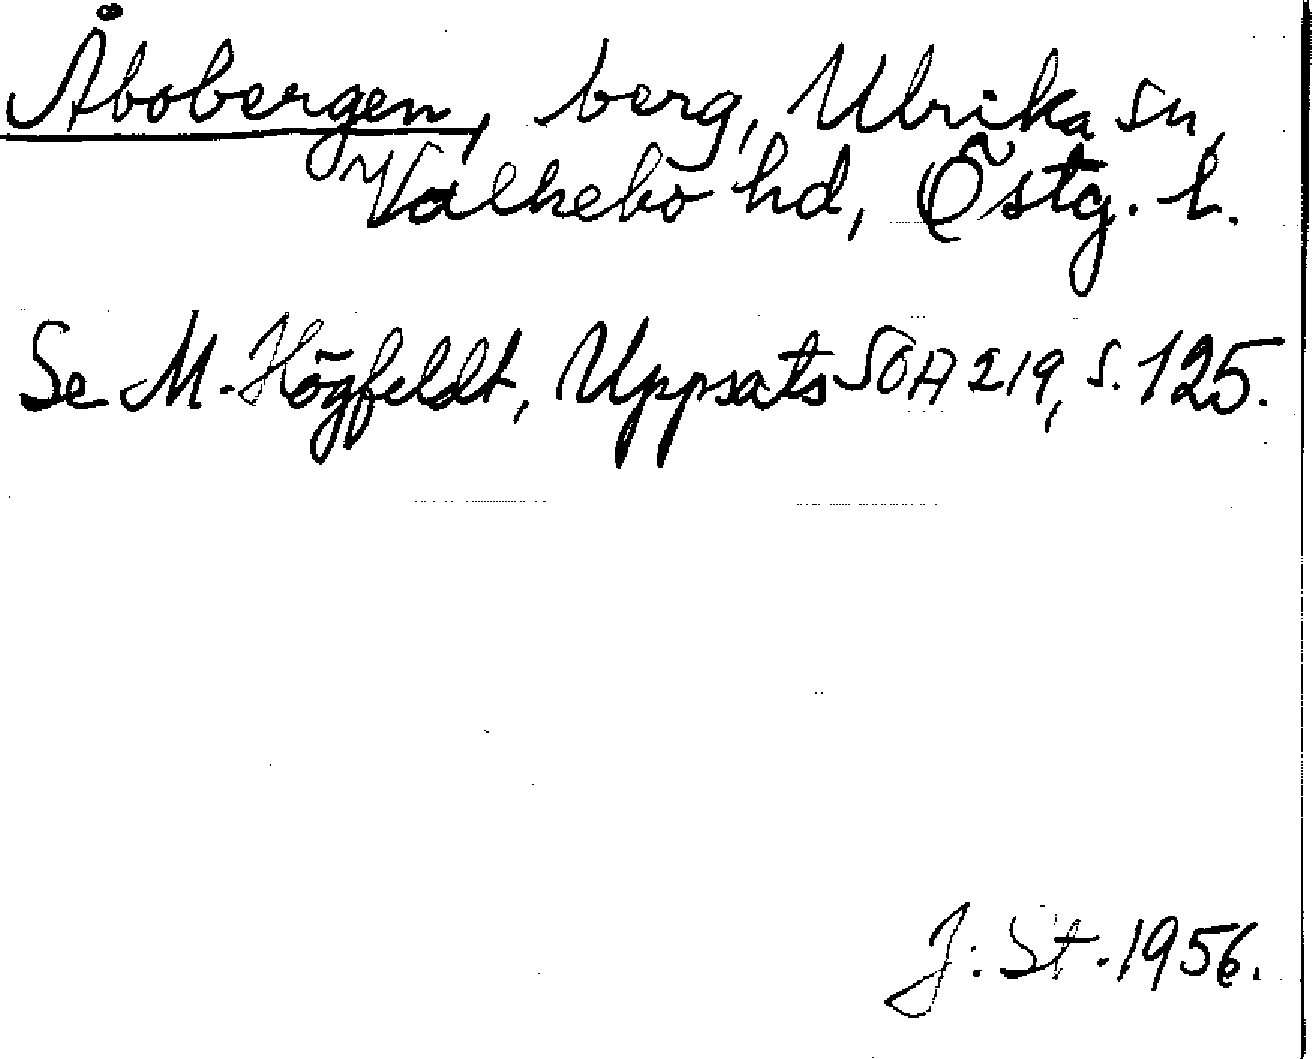 Åbobergen, berg, Ulrika sn,
Valkebo hd, Östg. l.
Se M. Högfeldt, Uppsats SOA 219, s. 125.
J. St. 1956.